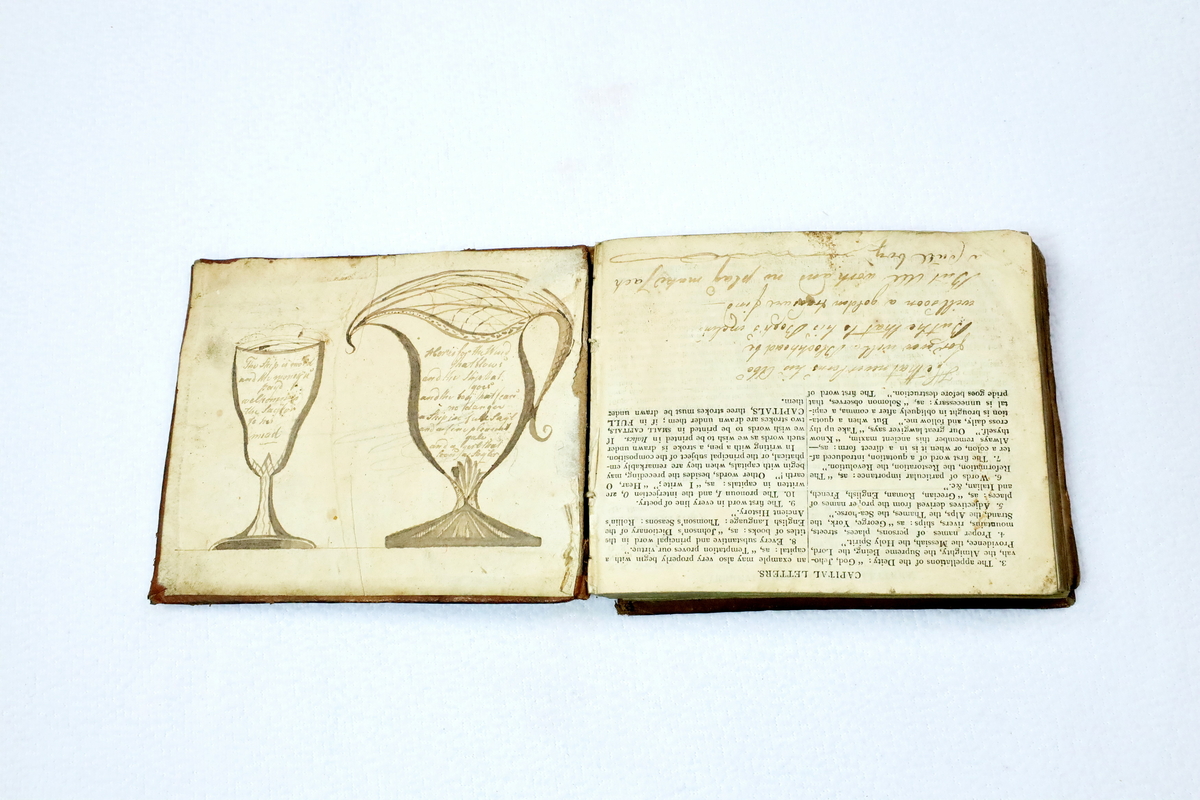 The Ship is
and the money's
paid
welcome is
the Sailor
to his
maid
Here is to the wind
that blows
and the Ship that
goes
and the boy that fears
no danger
a Ship in full Sail
and a fine pleasant
gale
and a girl that
loved a Sailor
CAPITAL LETTERS.
3. The appellations of the Deity: as, "God, Jeho-
vah, the Almighty, the Supreme Being, the Lord,
Providence, the Messiah, the Holy Spirit."
4. Proper names of persons, places, streets,
mountains, rivers, ships: as "George, York, the
Strand, the Alps, the Thames, the Sea-horse."
5. Adjectives derived from the proper names of
places: as, "Grecian, Roman, English, French,
and Italian, &c."
6. Words of particular importance: as, "The
Reformation, the Restoration, the Revolution."
7. The first word of a quotation, introduced af-
ter a colon, or when it is in a direct form: as,—
Always remember this ancient maxim, "Know
thyself." Our great lawgiver says, "Take up thy
cross daily, and follow me." But when a quota-
tion is brought in obliquely after a comma, a capi-
tal is unnecessary: as, "Solomon observes, that
pride goes before destruction." The first word of
an example may also very properly begin with a
capital: as, "Temptation proves our virtue."
8. Every substantive and principal word in the
titles of books: as, "Johnson's Dictionary of the
English Language; Thomson's Seasons; Rollin's
Ancient History."
9. The first word in every line of poetry.
10. The pronoun I, and the interjection O, are
written in capitals: as, "I write;" "Hear, O
earth!" Other words, besides the preceding, may
begin with capitals, when they are remarkably em-
phatical, or the principal subject of the composition.
In writing with a pen, a stroke is drawn under
such words as we wish to be printed in Italics. If
we wish words to be printed in SMALL CAPITALS,
two strokes are drawn under them; if in FULL
CAPITALS, three strokes must be drawn under
them.
He that never learns his ABC
forever will a Blockhead be
But he that to his Book's inclin'd
will soon a golden treasure find
But all work and no play makes Jack
a dull boy